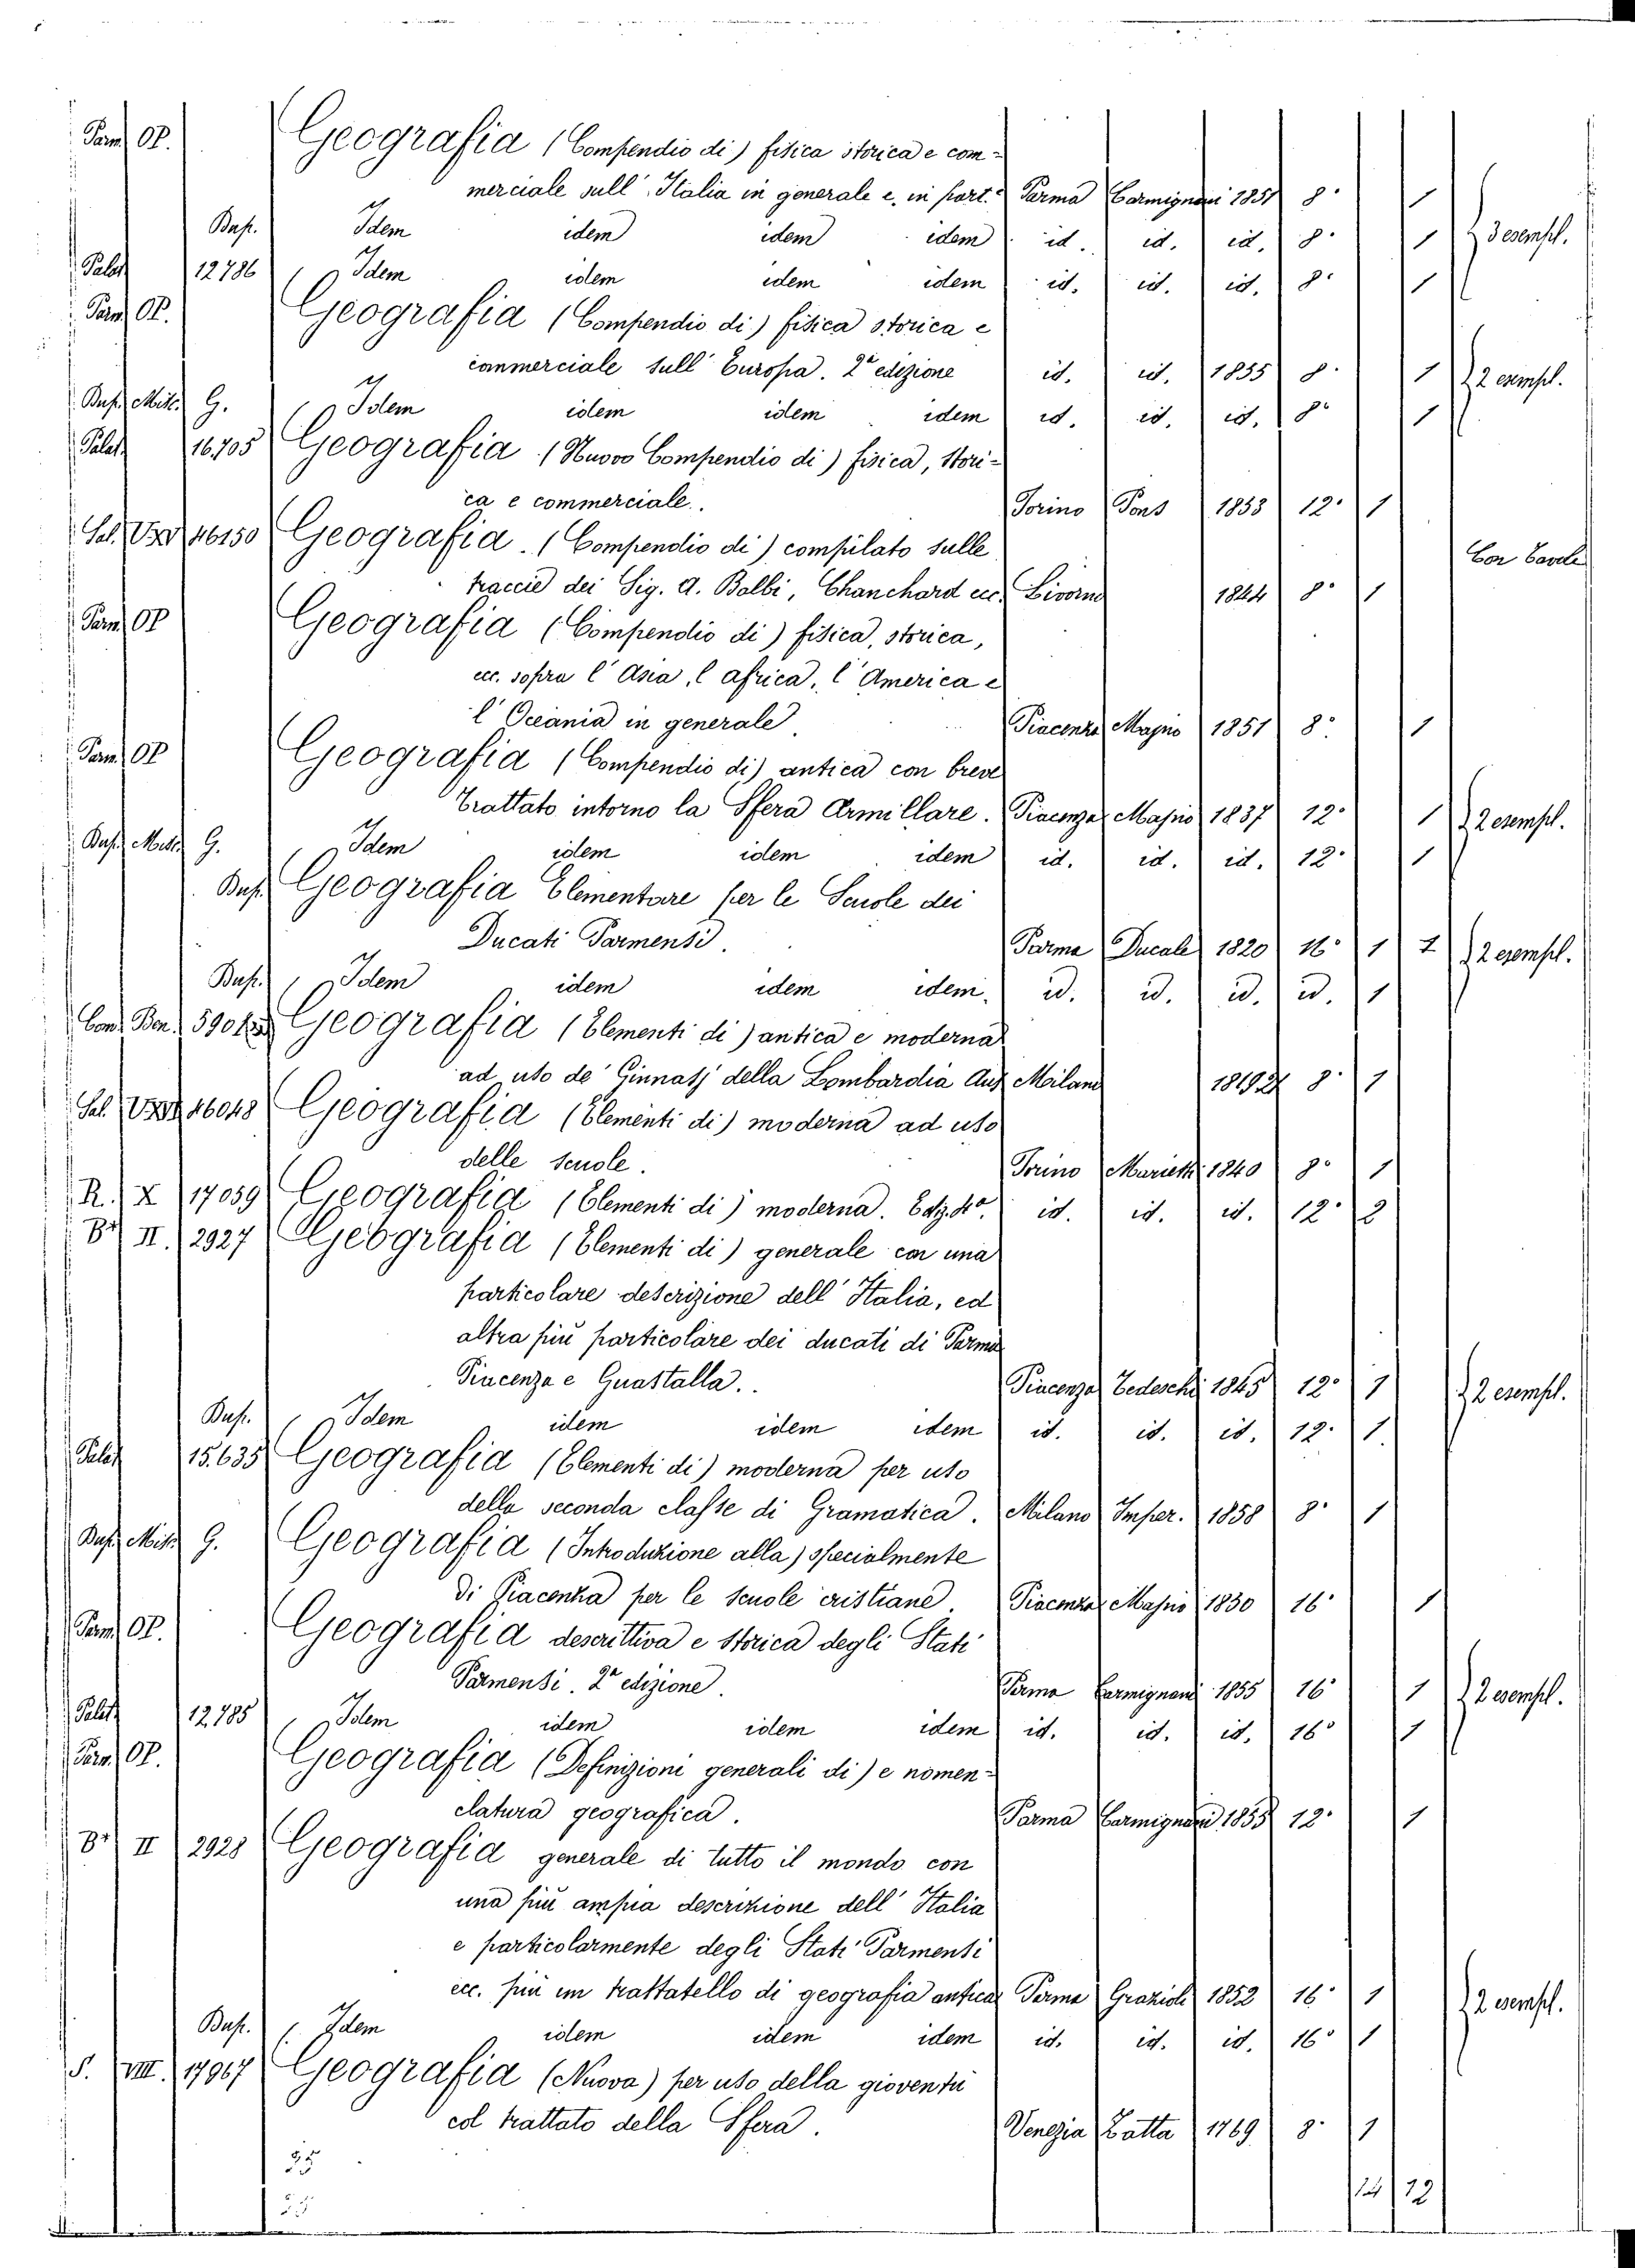 Parm. OP. Geografia (Compendio di) fisica storica e com-
merciale sull' Italia in generale e, in part. Parma Carmignani 1851 8° 1
Bap. Idem idem idem idem id. id. id. 8° 1 3 esempl.
Palat. 12786 Idem idem idem idem id. id. id. 8° 1
Parm. OP. Geografia (Compendio di) fisica storica e
commerciale sull' Europa. 2ª edizione id. id. 1855 8° 1 2 esempl.
Bap. Mit. G. Idem idem idem idem id. id. id. 8° 1
Palat. 16,705 Geografia (Nuovo Compendio di) fisica, stori-
ca e commerciale. Torino Pons 1853 12° 1
Sal. 46150 Geografia. (Compendio di) compilato sulle
traccie dei Sig. A. Balbi, Chanchard ecc. Livorno 1844 8° 1 Con tavole
Parm. OP Geografia (Compendio di) fisica, storica,
ecc. sopra l'Asia, l'africa, l'America e
l'Oceania in generale. Piacenza Majno 1851 8° 1
Parm. OP Geografia (Compendio di) antica con breve
Trattato intorno la Sfera Armillare. Piacenza Majno 1837 12° 1 2 esempl.
Bap. Mit. G. Idem idem idem idem id. id. id. 12° 1
Bap. Geografia Elementare per le Scuole dei
Ducati Parmensi. Parma Ducale 1820 16° 1 2 esempl.
Bap. Idem idem idem idem. id. id. id. id. 1
Con. Ben. Geografia (Elementi di) antica e moderna
ad uso de' Ginnasj della Lombardia Aus. Milano 8° 1
Sal. 46048 Geografia (Elementi di) moderna ad uso
delle scuole. Torino Marietti 1840 8° 1
R. X 17059 Geografia (Elementi di) moderna. Ediz. 4ª. id. id. id. 12° 2
Bª II. 2927 Geografia (Elementi di) generale con una
particolare descrizione dell' Italia, ed
altra più particolare dei ducati di Parma
Piacenza e Guastalla. Piacenza Tedeschi 1845 12° 1 2 esempl.
Bap. Idem idem idem idem id. id. id. 12° 1
Palat. 15.635 Geografia (Elementi di) moderna per uso
della seconda classe di Gramatica. Milano Imper. 1858 8° 1
Bap. Mit. G. Geografia (Introduzione alla) specialmente
di Piacenza per le scuole cristiane. Piacenza Majno 1830 16° 1
Parm. OP. Geografia descrittiva e storica degli Stati
Parmensi. 2ª edizione. Parma Carmignani 1855 16° 1 2 esempl.
Palat. 12,785 Idem idem idem idem id. id. id. 16° 1
Parm. OP. Geografia (Definizioni generali di) e nomen-
clatura geografica. Parma Carmignani 1855 12° 1
Bª II 2928 Geografia generale di tutto il mondo con
una più ampia descrizione dell' Italia
e particolarmente degli Stati Parmensi
ecc. più un trattatello di geografia antica Parma Grazioli 1852 16° 1 2 esempl.
Bap. Idem idem idem idem id. id. id. 16° 1
S. VIII. 17967 Geografia (Nuova) per uso della gioventù
col trattato della Sfera. Venezia Zatta 1769 8° 1
25